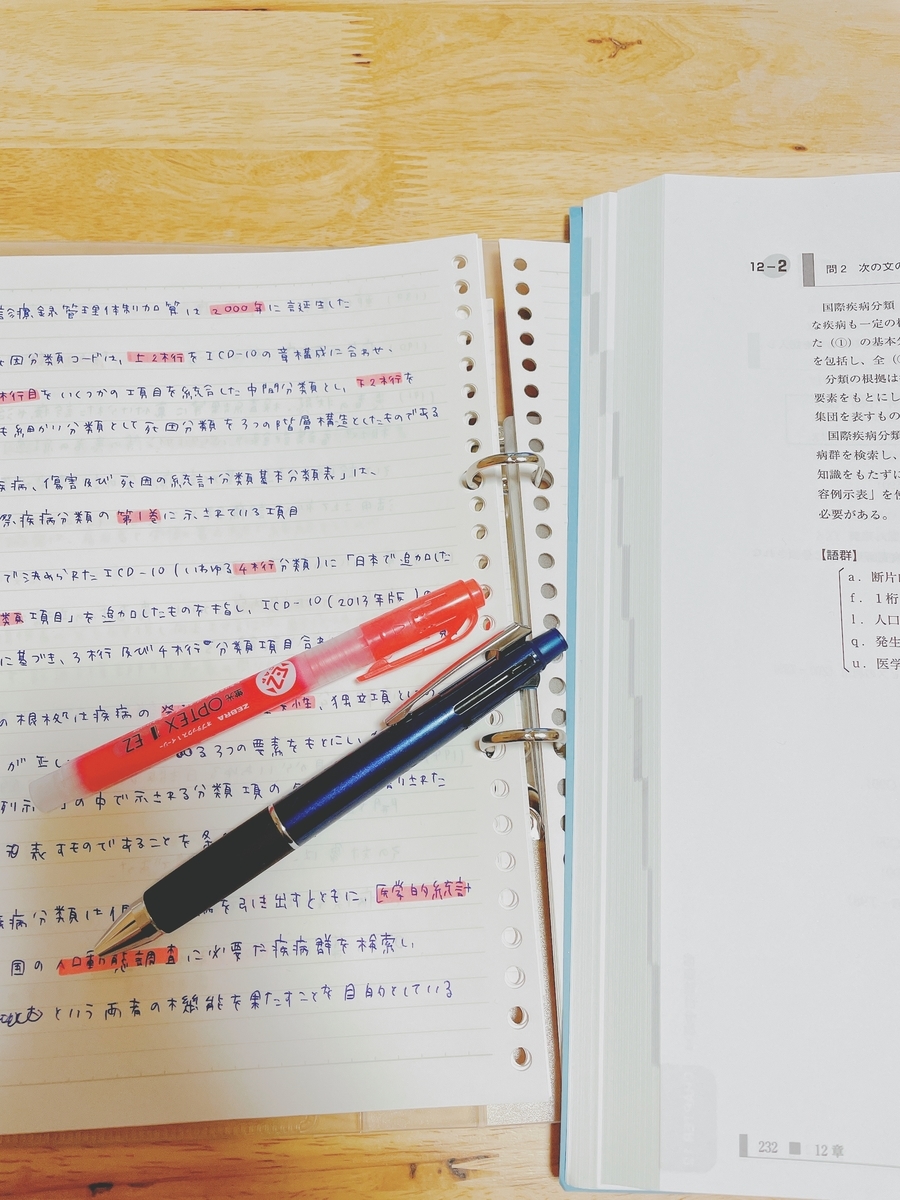 診療録管理体制加算は2000年に誕生した
死因分類コードは、上2桁をICD-10の章構成に合わせ、
桁目をいくつかの項目を統合した中間分類とし、下2桁を
も細かい分類として死因分類を3つの階層構造としたものである
疾病、傷害及び死因の統計分類基本分類表」は、
際疾病分類の第1巻に示されている項目
で決められたICD-10(いわゆる4桁分類)に「日本で追加した
類項目」を追加したものを指し、ICD-10(2013年版)
に基づき、3桁及び4桁 分類項目
の根拠は疾病の 性、独立項として
が 3つの要素をもとにし
の中で示される分類項の された
表すものであることを
疾病分類は を引き出すとともに、医学的統計
国の人口動態調査に必要な疾病群を検索し
という両者の機能を果たすことを目的としている
ZEBRA
蛍光 OPTEX 1 EZ
オプテックス1イージー
12-2 問2 次の文の
国際疾病分類
な疾病も一定の
た(①)の基本
を包括し、全(
分類の根拠は
要素をもとにし
集団を表すもの
国際疾病分類
病群を検索し、
知識をもたずに
容例示表」を使
必要がある。
【語群】
a. 断片
f. 1桁
l. 人口
q. 発生
u. 医学
232 ■ 12章